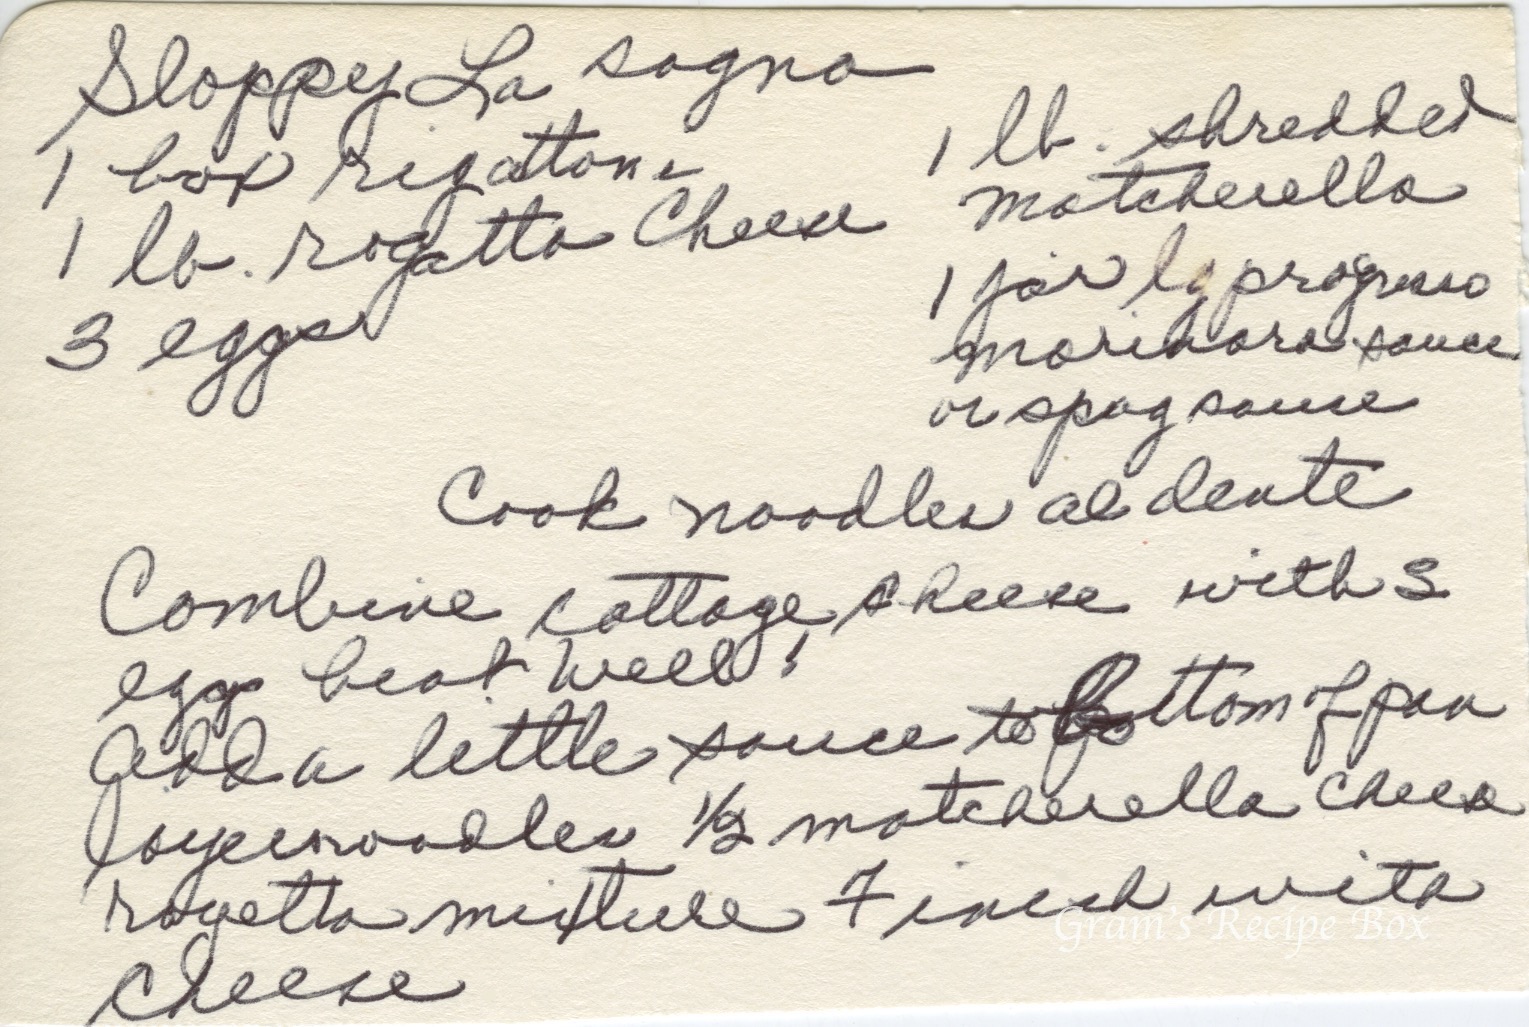 Sloppy La sagna
1 box rigattoni
1 lb. rogatta Cheese
3 eggs
1 lb. shredded
matcherella
1 jar lg progresso
marinara sauce
or spag sauce
Cook noodles al dente
Combine cottage cheese with 3
eggs beat well!
Add a little sauce to Bottom of pan
layer noodles 1/2 matcherella cheese
rogetta mixture Finish with
Cheese
Gram's Recipe Box